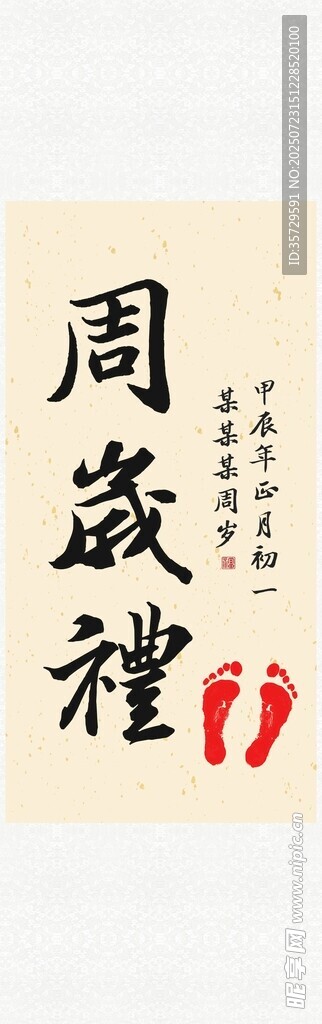 周歲禮
甲辰年正月初一
某某某周岁
ID:35729591 NO:20250723151228520100
昵享网 www.nipic.cn